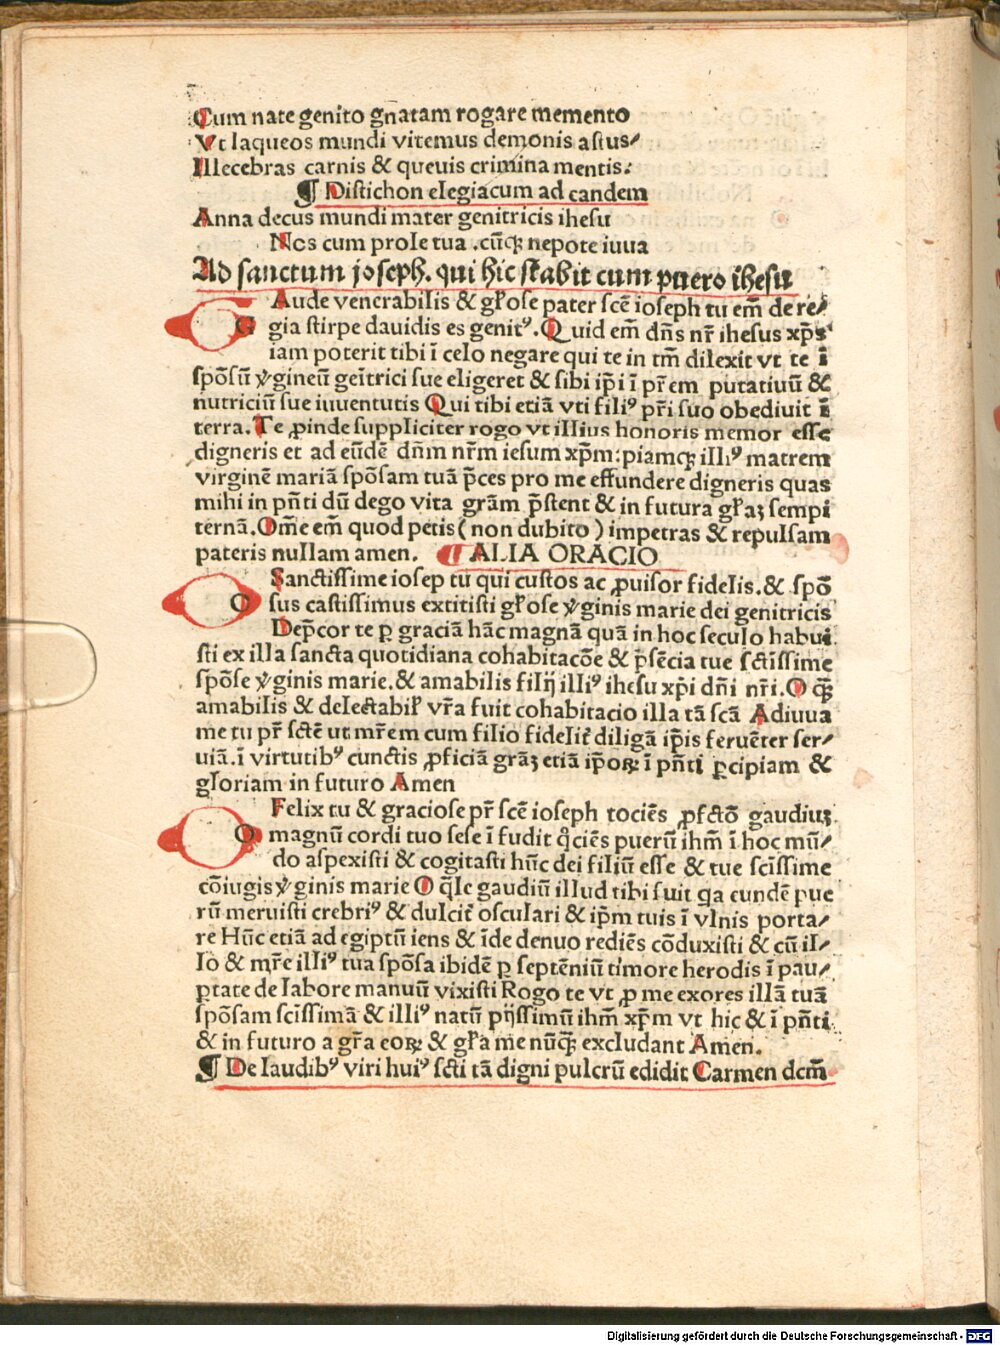 Cum nate genito gnatam rogare memento
Vt laqueos mundi vitemus demonis astus/
Illecebras carnis & queuis crimina mentis.
¶ Distichon elegiacum ad eandem
Anna decus mundi mater genitricis ihesu
Nos cum prole tua .cūqꝫ nepote iuua
Ad sanctum joseph. qui hic stabit cum puero ihesu
G Aude venerabilis & gl̄ose pater scē ioseph tu em̄ de re/
gia stirpe dauidis es genitꝰ. Quid em̄ dn̄s nr̄ ihesus xp̄s
iam poterit tibi ī celo negare qui te in tm̄ dilexit vt te ī
spōsū v̄gineū geītrici sue eligeret & sibi ip̄i ī pr̄em putatiuū &
nutriciū sue iuuentutis Qui tibi etiā vti filiꝰ pr̄i suo obediuit ī
terra. Te ꝓinde suppliciter rogo vt illius honoris memor esse
digneris et ad eūdē dn̄m nr̄m iesum xp̄m: piamqꝫ illiꝰ matrem
virginē mariā spōsam tuā p̄ces pro me effundere digneris quas
mihi in pn̄ti dū dego vita grām p̄stent & in futura gl̄aꝫ sempi
ternā. Om̄e em̄ quod petis ( non dubito ) impetras & repulsam
pateris nullam amen. ¶ ALIA ORACIO
O Sanctissime iosep tu qui custos ac ꝓuisor fidelis. & spō
sus castissimus extitisti gl̄ose v̄ginis marie dei genitricis
Dep̄cor te ꝑ graciā hāc magnā quā in hoc seculo habui
sti ex illa sancta quotidiana cohabitacōe & p̄sēcia tue sc̄tissime
spōse v̄ginis marie. & amabilis filij illiꝰ ihesu xp̄i dn̄i nr̄i. O qꝫ̄
amabilis & delectabil̄ vr̄a fuit cohabitacio illa tā scā Adiuua
me tu pr̄ sctē ut mr̄em cum filio fidelit̄ diligā ip̄is feruēter ser/
uiā. ī virtutibꝰ cunctis ꝓficiā grāꝫ etiā ip̄oꝝ ī pn̄ti ꝑcipiam &
gloriam in futuro Amen
O Felix tu & graciose pr̄ scē ioseph tociēs ꝓfctō gaudiuꝫ
magnū cordi tuo sese ī fudit q̄ciēs puerū ihm̄ ī hoc mū/
do aspexisti & cogitasti hūc dei filiū esse & tue scissime
cōiugis v̄ginis marie O q̄le gaudiū illud tibi fuit qa eundē pue
rū meruisti crebriꝰ & dulcit̄ osculari & ip̄m tuis ī vlnis porta/
re Hūc etiā ad egiptū iens & īde denuo rediēs cōduxisti & cū il/
lo & mr̄e illiꝰ tua spōsa ibidē ꝑ septēniū timore herodis ī pau/
ꝑtate de labore manuū vixisti Rogo te vt ꝓ me exores illā tuā
spōsam scissimā & illiꝰ natū pijssimū ihm̄ xp̄m vt hic & ī pn̄ti
& in futuro a gr̄a eoꝝ & gl̄a me nūqꝫ̄ excludant Amen.
¶ De laudibꝰ viri huiꝰ scti tā digni pulcrū edidit Carmen dcm̄
Digitalisierung gefördert durch die Deutsche Forschungsgemeinschaft - DFG